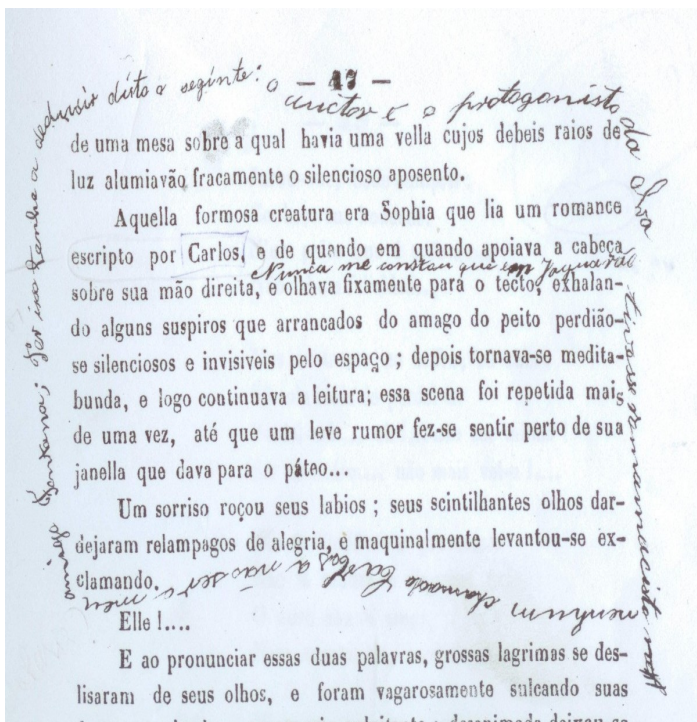 — 47 —
de uma mesa sobre a qual havia uma vella cujos debeis raios de
luz alumiavão fracamente o silencioso aposento.
Aquella formosa creatura era Sophia que lia um romance
escripto por Carlos, e de quando em quando apoiava a cabeça
sobre sua mão direita, e olhava fixamente para o tecto, exhalan-
do alguns suspiros que arrancados do amago do peito perdião-
se silenciosos e invisiveis pelo espaço ; depois tornava-se medita-
bunda, e logo continuava a leitura; essa scena foi repetida mais
de uma vez, até que um leve rumor fez-se sentir perto de sua
janella que dava para o páteo...
Um sorriso roçou seus labios ; seus scintilhantes olhos dar-
dejaram relampagos de alegria, e maquinalmente levantou-se ex-
clamando.
Elle !....
E ao pronunciar essas duas palavras, grossas lagrimas se des-
lisaram de seus olhos, e foram vagarosamente sulcando suas
Nunca me constou que em Jaguarão
tivesse romancista
nenhum chamado Carlos a não ser o meu
amigo Fontana; Por isso tenho a deduzir disto o seginte: o auctor é o protagonista da obra